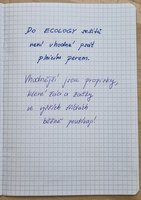 Do ECOLOGY sešitů
není vhodné psát
plnicím perem.
Vhodnější jsou propisky,
které žáci a žačky
ve vyšších třídách
běžně používají